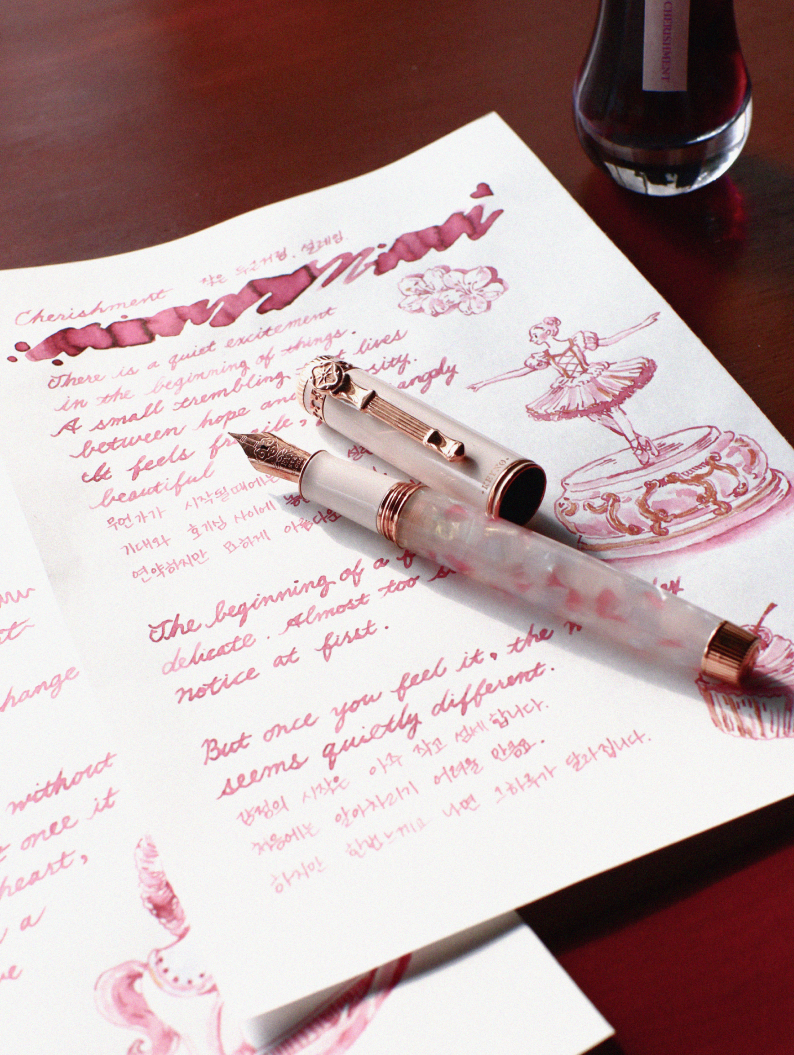 CHERISHMENT
Cherishment 작은 두근거림, 설레임.
There is a quiet excitement
in the beginning of things.
A small trembling lives
between hope and sity.
It feels fragile, angely
beautiful
무언가가 시작될때에는
기대와 호기심 사이에
연약하지만 묘하게 아름다운
The beginning of a
delicate. Almost too
notice at first.
But once you feel it, the
seems quietly different.
감정의 시작은 아주 작고 섬세합니다.
처음에는 알아차리기 어려울 만큼요.
하지만 한번 느끼고 나면 그 하루가 달라집니다.
change
without
once it
heart,
a